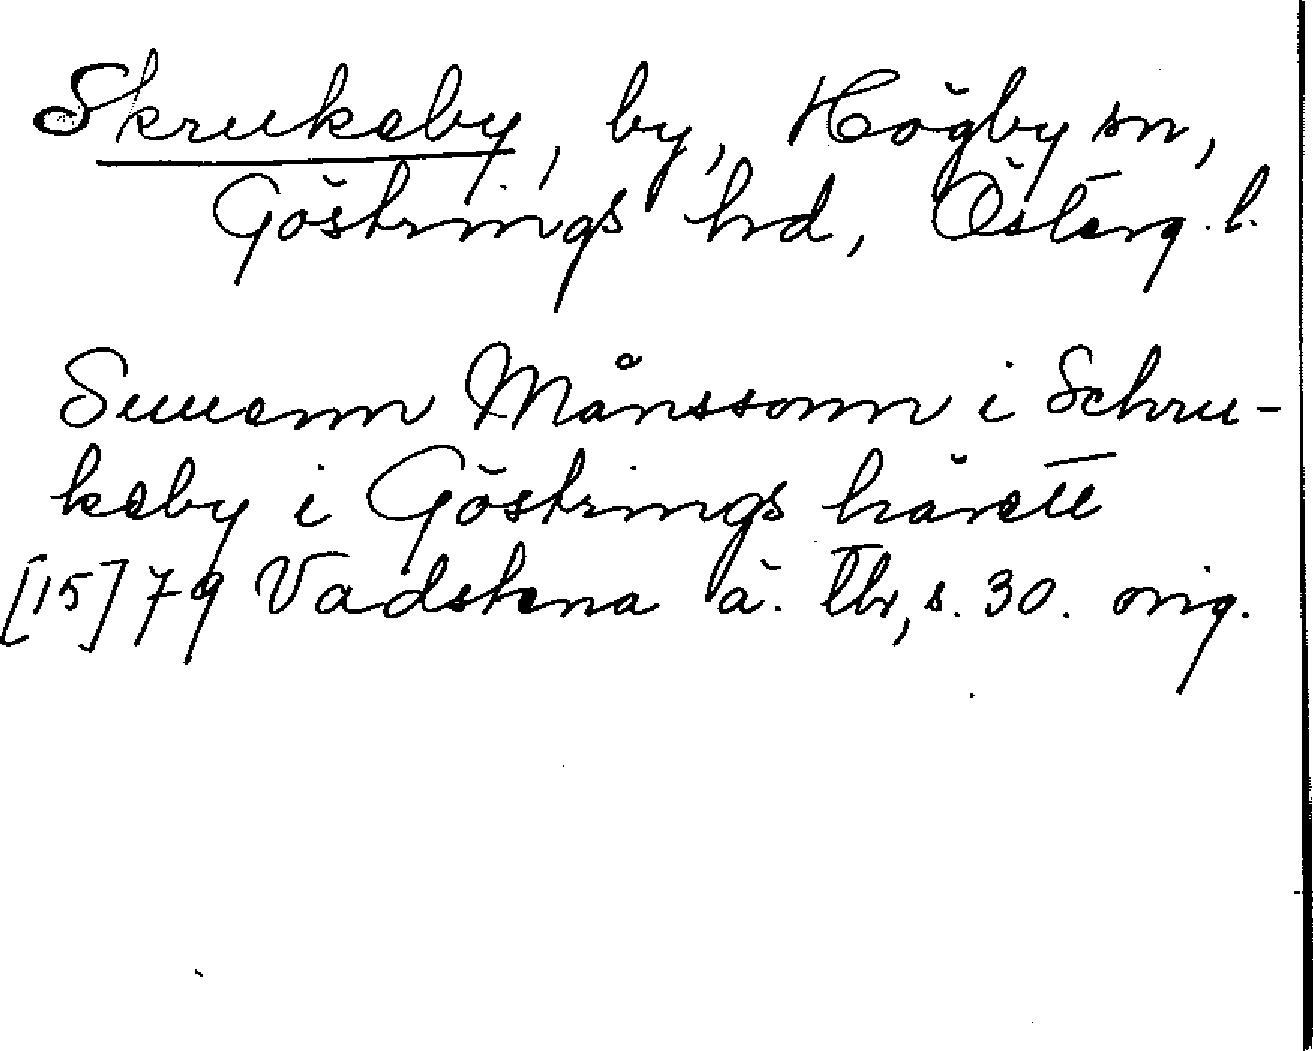 Skrukeby, by, Högby sn,
Göstrings hrd, Österg. l.
Suuenn Månssonn i Schru-
keby i Göstrings härett
[15]79 Vadstena ä. Tbr, s. 30. orig.